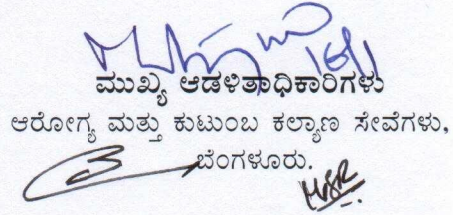 ಮುಖ್ಯ ಆಡಳಿತಾಧಿಕಾರಿಗಳು
ಆರೋಗ್ಯ ಮತ್ತು ಕುಟುಂಬ ಕಲ್ಯಾಣ ಸೇವೆಗಳು,
ಬೆಂಗಳೂರು.